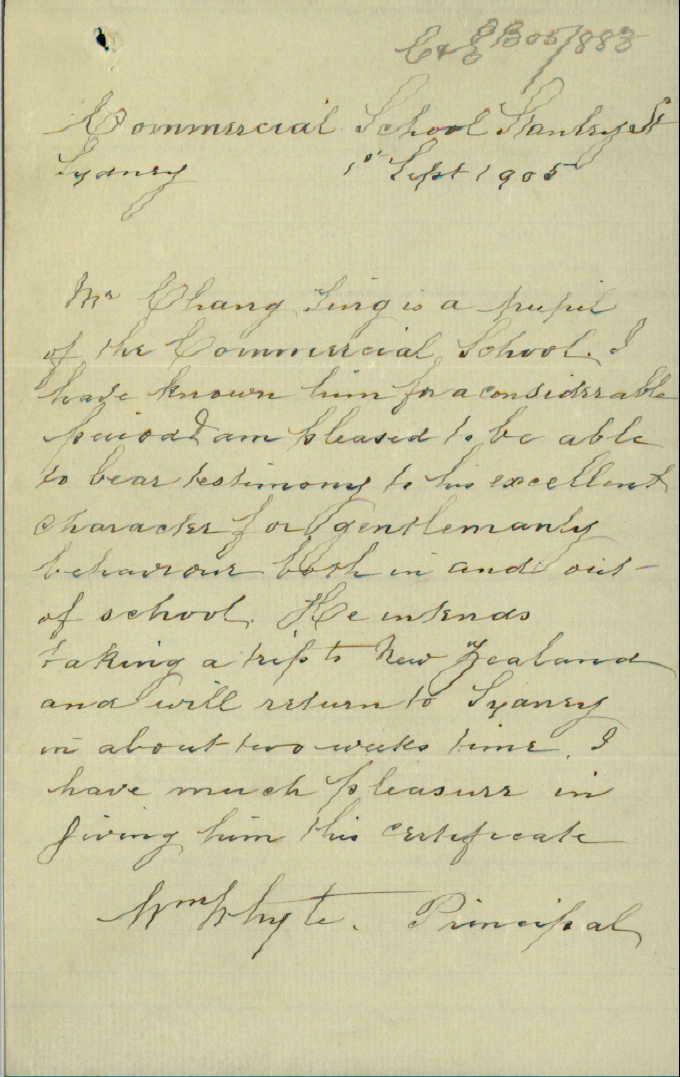 Commercial School Stanley St
Sydney 1st Sept 1905
Mr Chang Ling is a pupil
of the Commercial School. I
have known him for a considerable
period I am pleased to be able
to bear testimony to his excellent
character for gentlemanly
behaviour both in and out
of school. He intends
taking a trip to New Zealand
and will return to Sydney
in about two weeks time. I
have much pleasure in
giving him this certificate
Wm Whyte. Principal